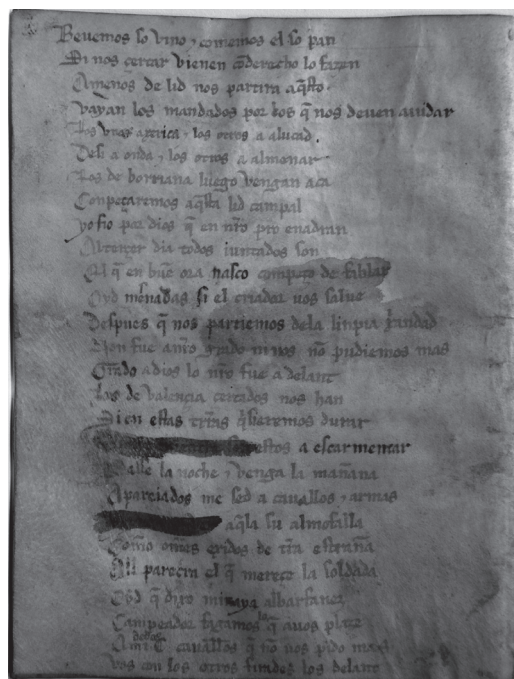 Beuemos so vino ⁊ comemos el so pan
Si nos çercar vienen cõ derecho lo fazen
Amenos de lid nos partira aq̃sto
vayan los mandados por los q̃ nos deuen aiudar
los vnos axerica ⁊ los otros a alucad
Desi a onda ⁊ los otros a almenar
Los de borriana luego vengan aca
Conpeçaremos aq̃sta lid campal
yo fio por dios q̃ en nr̃o pro enadran
Al terçer dia todos iuntados son
El q̃ en bũe ora nasco compeço de fablar
Oyd mesnadas si el criador uos salue
Despues q̃ nos partiemos dela linpia xp̃andad
Non fue a nr̃o grado ni nos nõ pudiemos mas
Grado a dios lo nr̃o fue adelant
Los de valençia çercados nos han
Si en estas tr̃ras q̃sieremos durar
estos a escarmentar
Passe la noche ⁊ venga la mañana
Apareiados me sed a cauallos ⁊ armas
aq̃la su almofalla
Commo om̃es exidos de tr̃ra estraña
Alli pareçra el q̃ mereçe la soldada
Oyd q̃ dixo minaya albarfanez
Campeador fagamos lo q̃ auos plaze
Ami dedes .C. cauallos q̃ no uos pido mas
vos con los otros firades los delant